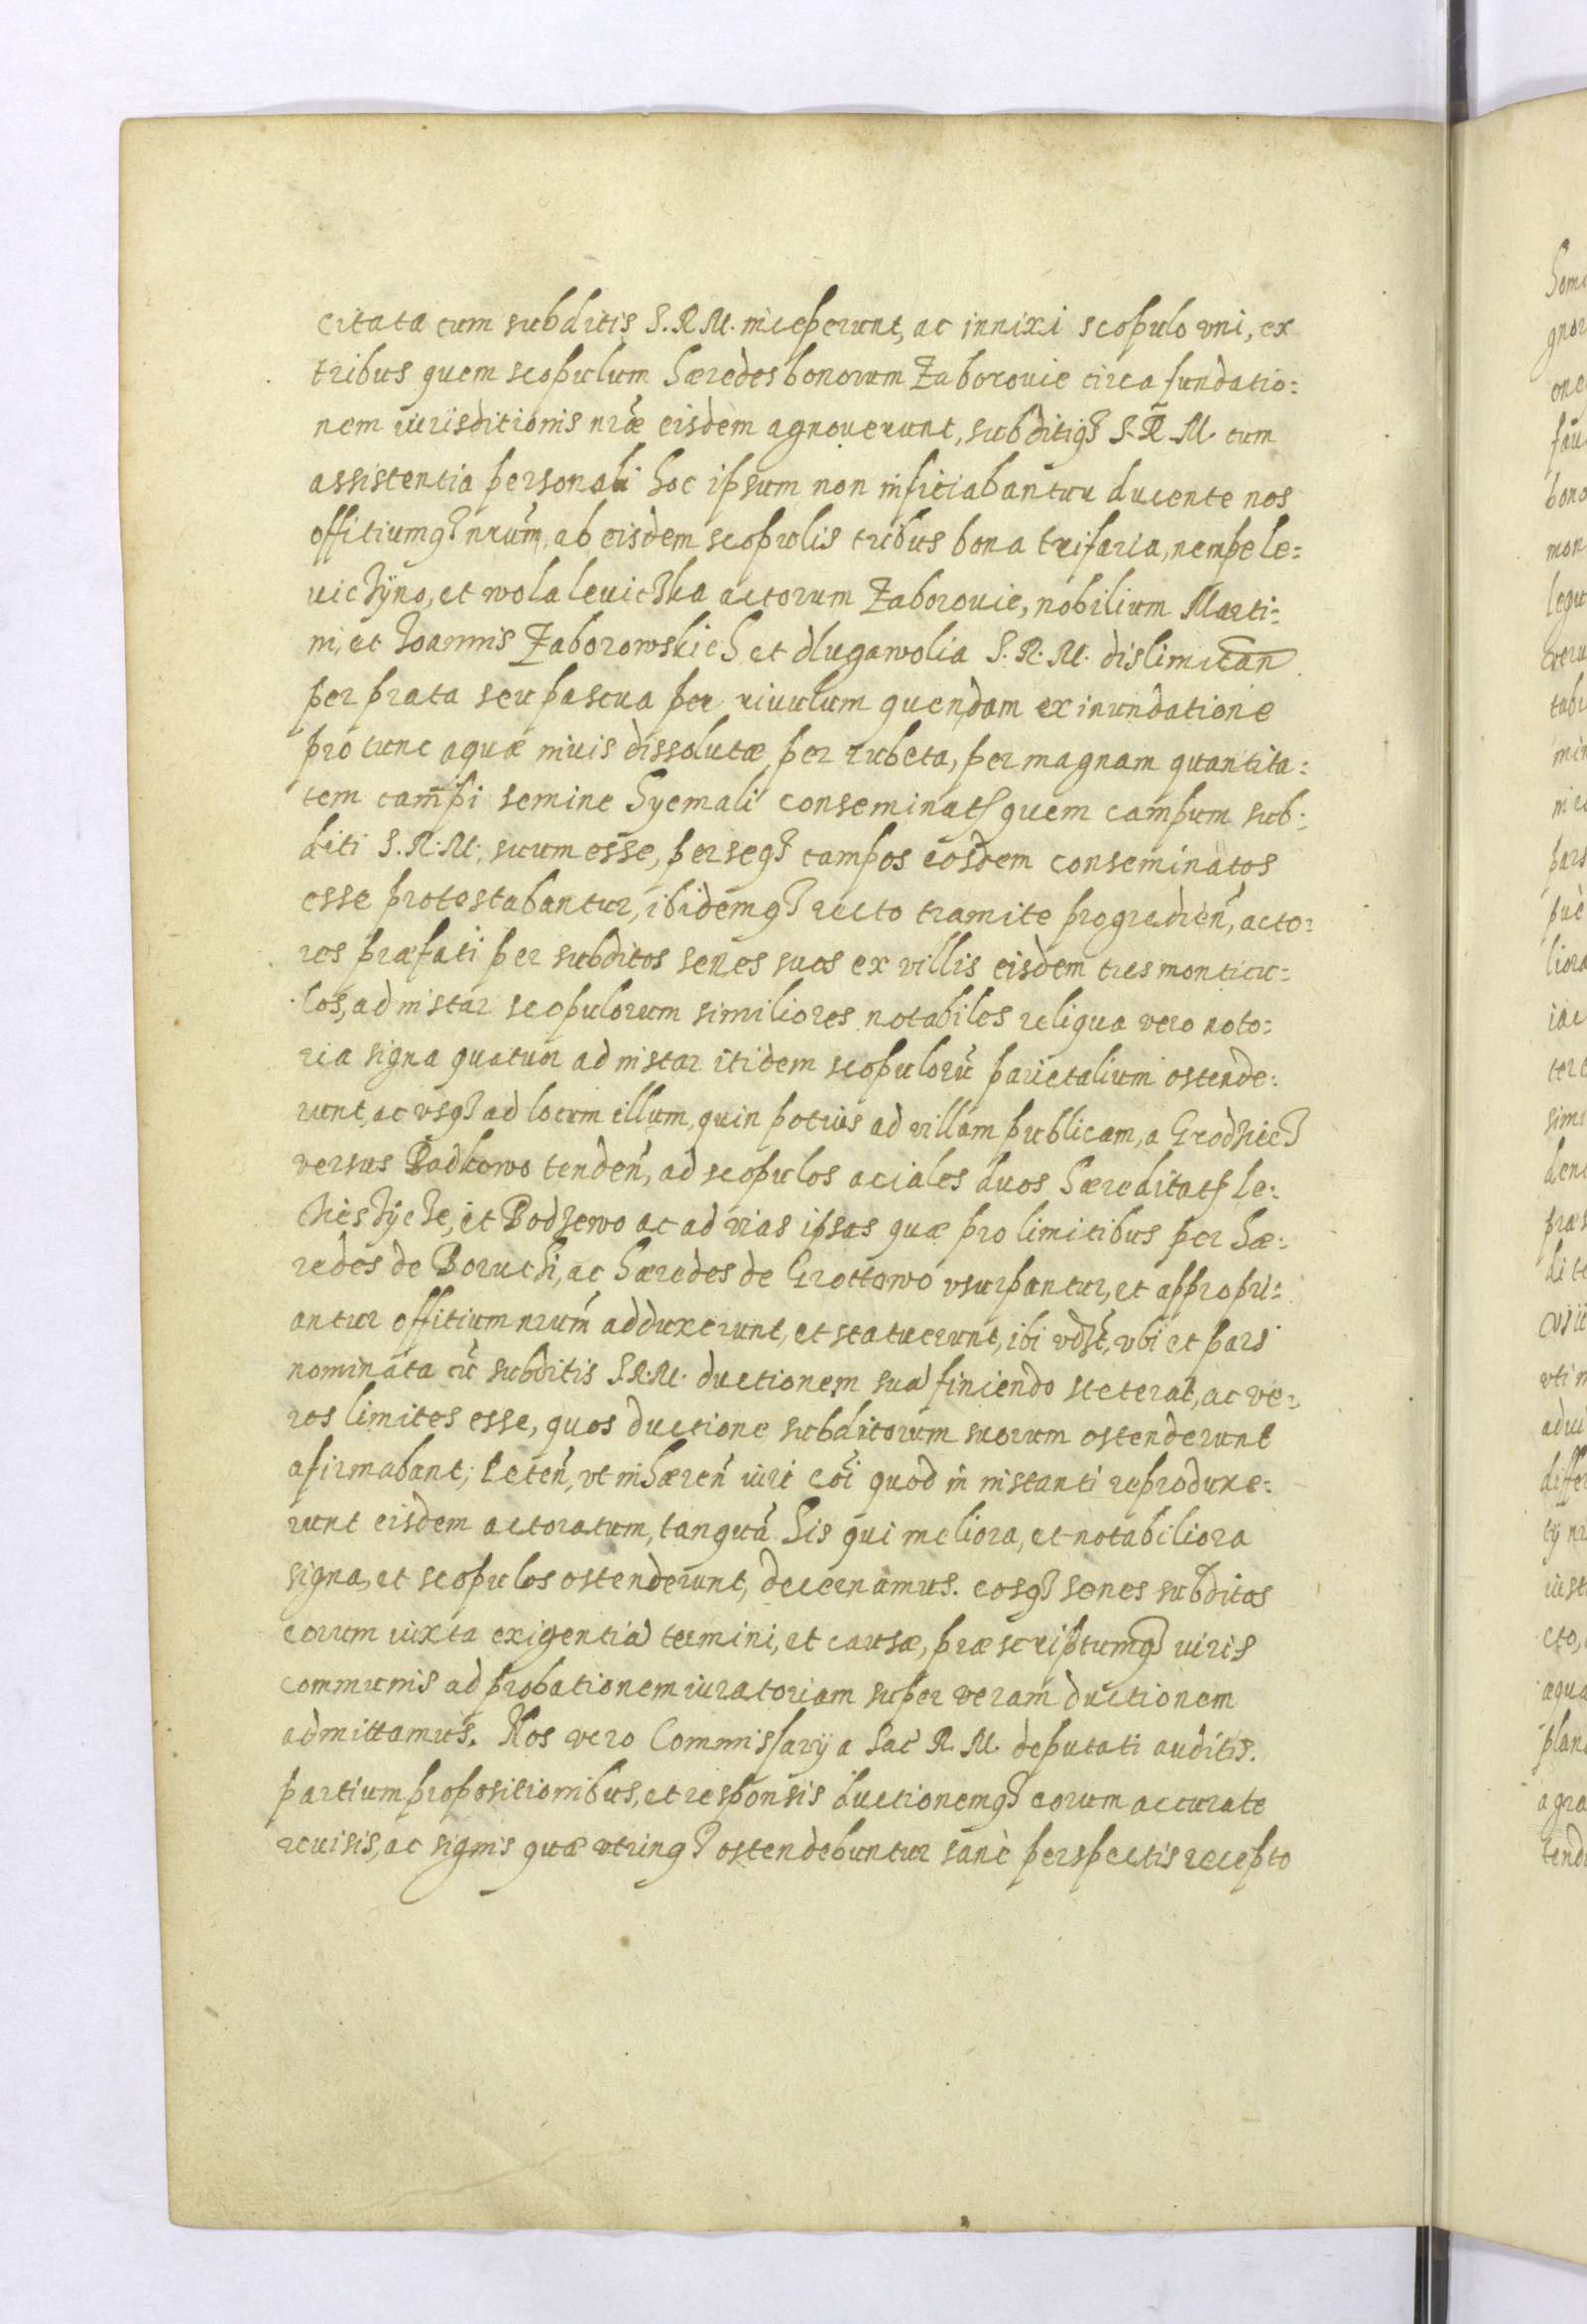 citata cum subditis S. R. M. inceperunt, ac innixi scopulo uni, ex
tribus quem scopulum hæredes bonorum Zaborouie circa fundatio=
nem iurisditionis nr̃æ eisdem agnouerunt, subditiq3 S. R. M. cum
assistentia personali hoc ipsum non inficiabantur ducente nos
offitiumq3 nrũm, ab eisdem scopulis tribus bona trifaria, nempe le=
uiczÿno, et wola leuiczka actorum Zaborouie, nobilium Marti=
ni, et Joannis Zaborowskich et dlugawolia S. R. M. dislimitan̄
per prata seu pascua per riuulum quendam ex inundatione
pro tunc aquæ niuis dissolutæ per rubeta, per magnam quantita=
tem campi semine hyemali conseminatꝭ quem campum sub=
diti S. R. M. suum esse, per seq3 campos eosdem conseminatos
esse protestabantur, ibidemq3 recto tramite progredien̄, acto=
res præfati per subditos senes suos ex villis eisdem tres monticu=
los, ad instar scopulorum similiores notabiles reliqua vero noto=
ria signa quatuor ad instar itidem scopulorũ parietalium ostende=
runt, ac usq3 ad locum illum, quin potius ad villam publicam, a Grodziec3
versus Badkowo tenden̄, ad scopulos aciales duos hæreditatꝭ le=
chiesÿcze, et Bodzewo ac ad vias ipsas quæ pro limitibus per hæ=
redes de Boruchi, ac hæredes de Grottowo usurpantur, et appropri=
antur offitium nrũm adduxerunt, et statuerunt, ibi vdst̃, vbi et pars
nominata cũ subditis S. R. M. ductionem suã finiendo steterat, ac ve=
ros limites esse, quos ductione subditorum suorum ostenderunt
afirmabant; Peten̄, vt inhæren̄ iuri cõi quod in instanti reproduxe=
runt eisdem actoratum, tanquã his qui meliora, et notabiliora
signa, et scopulos ostenderunt, decernamus. eosq3 senes subditos
eorum iuxta exigentiã termini, et causæ, præscriptumq3 iuris
communis ad probationem iuratoriam super veram ductionem
admittamus. Nos vero Commissarij a Sac̃ R. M. deputati auditis.
partium propositionibus, et responsis ductionemq3 eorum accurate
reuisis, ac signis quæ utrinq3 ostendebuntur sanè perspectis recepto